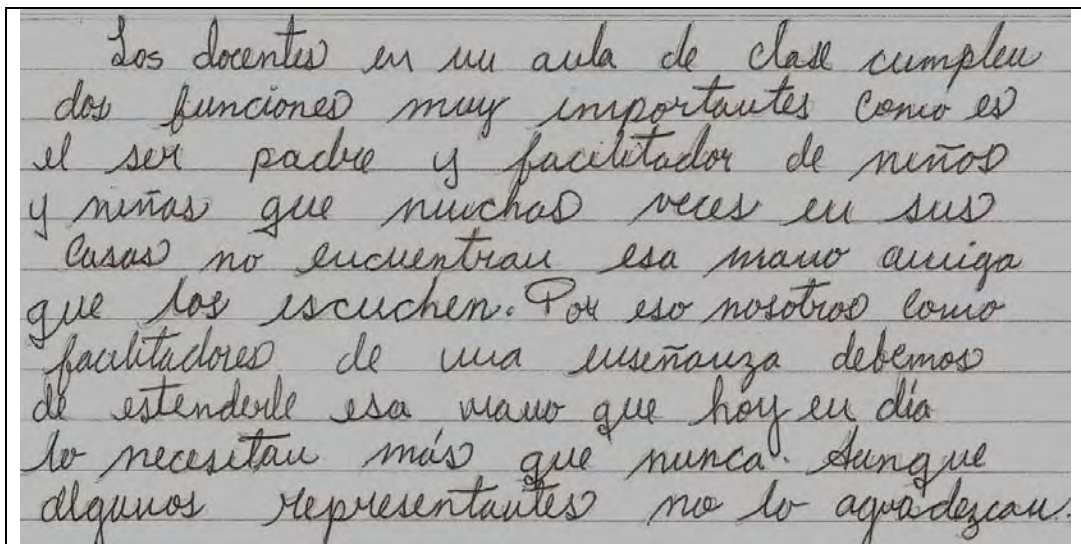 Los docentes en un aula de clase cumplen
dos funciones muy importantes como es
el ser padre y facilitador de niños
y niñas que muchas veces en sus
casas no encuentran esa mano amiga
que los escuchen. Por eso nosotros como
facilitadores de una enseñanza debemos
de estenderle esa mano que hoy en día
lo necesitan más que nunca. Aunque
algunos representantes no lo agradezcan.